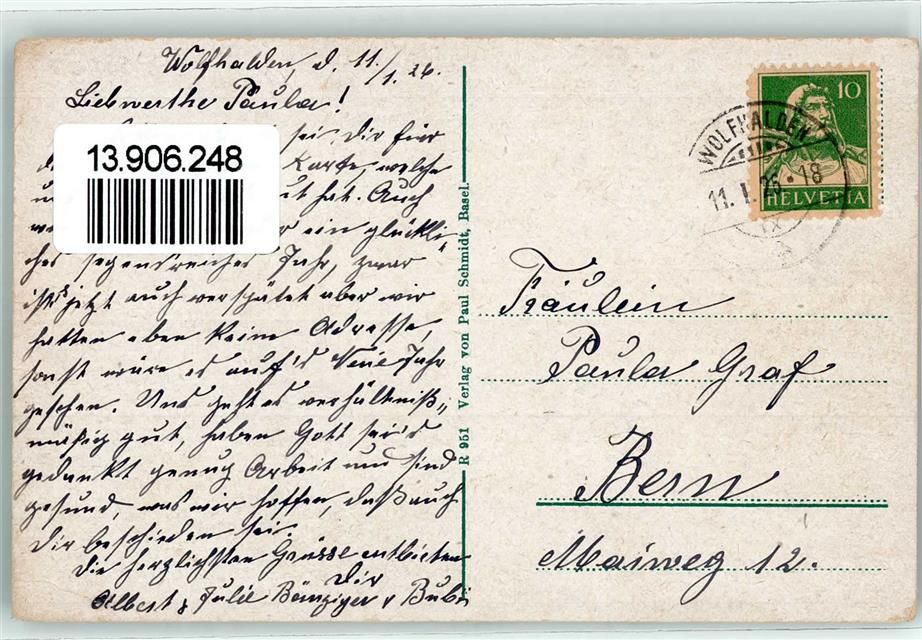 Wolfhalden, d. 11./1. 26.
Liebwerthe Paula!
sei Dir für
Karte, welche
hat. Auch
ein glückli"
ches segensreiches Jahr, zwar
ist's jetzt auch verspätet aber wir
hatten eben keine Adresse,
sonst wäre es auf's Neue Jahr
geschehen. Uns geht es verhältniß„
mäßig gut, haben Gott sei's
gedankt genug Arbeit und sind
gesund, was wir hoffen, daß auch
Dir beschieden sei.
Die herzlichsten Grüsse entbieten
Dir
Albert & Julie Bänziger & Bubi
13.906.248
R 951 Verlag von Paul Schmidt, Basel.
10
HELVETIA
WOLFHALDEN
11. I. 26 - 18
IX
Fräulein
Paula Graf
Bern
Maiweg 12.